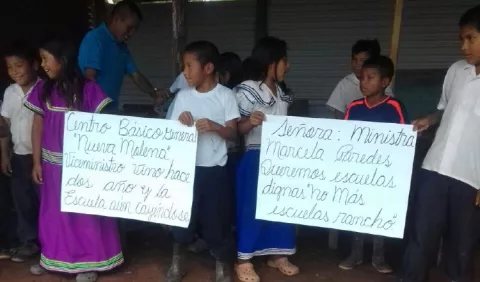 Centro Básico General
"Nueva Molena"
Viceministro vino hace
dos año y la
Escuela aún cayéndose
Señora: Ministra
Marcela Paredes
Queremos escuelas
dignas "no Más
escuelas rancho"